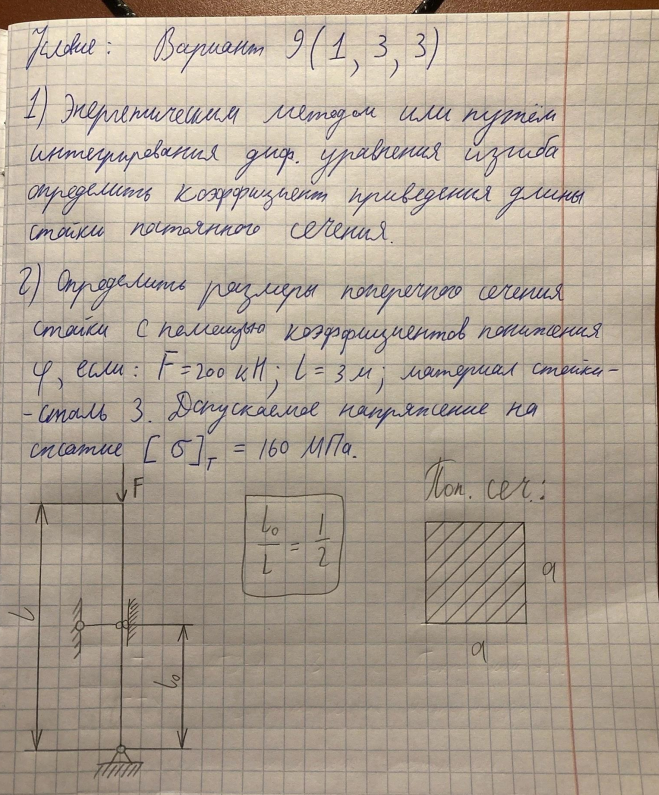 Условие: Вариант 9(1, 3, 3)
1) Энергетическим методом или путём
интегрирования диф. уравнения изгиба
определить коэффициент приведения длины
стойки постоянного сечения.
2) Определить размеры поперечного сечения
стойки с помощью коэффициентов понижения
φ, если: F = 200 кН; l = 3 м; материал стойки-
-сталь 3. Допускаемое напряжение на
сжатие [σ]т = 160 МПа.
F
Поп. сеч.:
l₀/l = 1/2
l
l₀
a
a